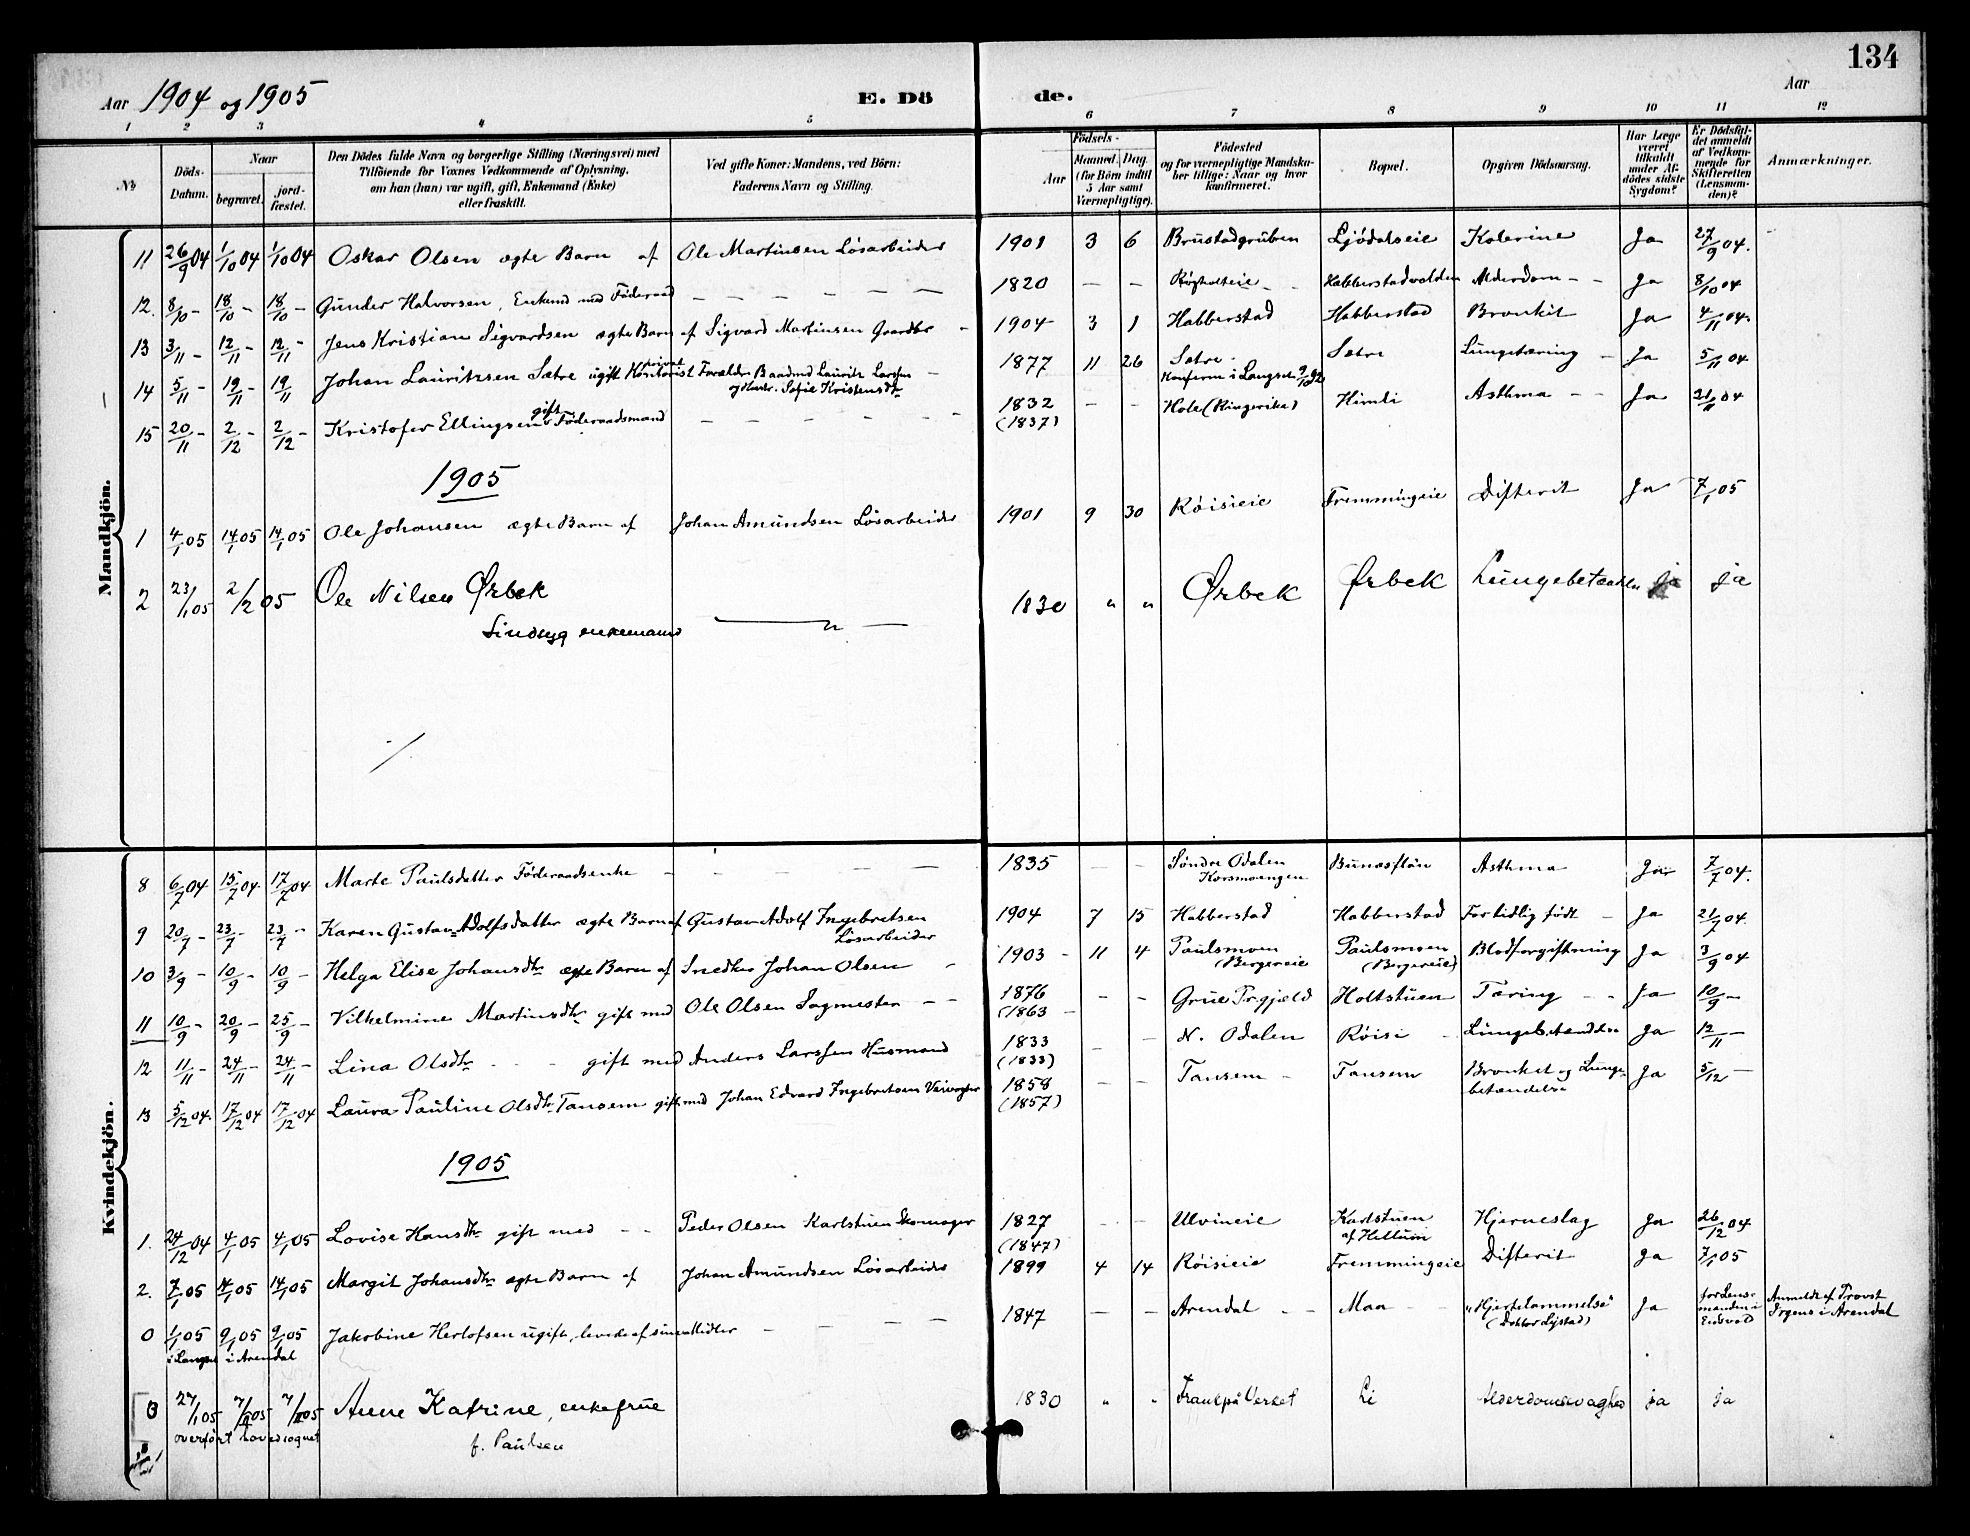 134
Aar 1904 og 1905 E. Dö de. Aar
1 2 3 4 5 6 7 8 9 10 11 12
No Döds-Datum. Naar begravet. jord-fæstet. Den Dödes fulde Navn og borgerlige Stilling (Næringsvei) med Tilföiende for Voxnes Vedkommende af Oplysning, om han (hun) var ugift, gift, Enkemand (Enke) eller fraskilt. Ved gifte Koner: Mandens, ved Börn: Faderens Navn og Stilling. Födsels- Aar Maaned. Dag. (for Börn indtil 5 Aar samt Værnepligtige). Födested og for værnepligtige Mandskaber tillige: Naar og hvor konfirmeret. Bopæl. Opgiven Dödsaarsag. Har Læge været tilkaldt under Afdödes sidste Sygdom? Er Dödsfaldet anmeldt af Vedkommende for Skifteretten (Lensmanden)? Anmærkninger.
Mandkjön.
11 26/9 04 1/10 04 1/10 04 Oskar Olsen ægte Barn af Ole Martinsen Løsarbeider 1901 3 6 Brustadgruben Ljødalseie Kolerine Ja 27/9 04.
12. 8/10 - 18/10 - 18/10 - Gunder Halvorsen, Enkemd med Föderaad - - - 1820 - - Habberstadvolden Alderdom - - Ja 8/10 04
13 3/11 - 12/11 - 12/11 - Jens Kristian Sigvardsen ægte Barn af Sigvard Martinsen Gaardbr - 1904 3 1 Habberstad Habberstad Bronkit Ja 4/11 04.
14 5/11 - 19/11 - 19/11 Johan Lauritzsen Sætre ugift privat Kontorist Forældre Baadmd Lauritz Larssen og Kone. Sofie Kristensdtr 1877 11 26 Sætre. Konfirm i Langset 9/10 92 Sætre Lungetæring - Ja 5/11 04.
15 20/11 - 2/12 - 2/12 - Kristofer Ellingsen gift Föderaadsmand - - - 1832 (1837) - - Hole (Ringerike) Himli Asthma - - Ja 21/11 04
1905
1 4/1 05 14/1 05 14/1 05 Ole Johansen ægte Barn af Johan Amundsen Løsarbeider 1901 9 30 Røisieie Fremmingeie Difterit Ja 7/1 05
2 23/1 05 2/2 05 Ole Nilsen Ørbek 1830 " " Ørbek Ørbek ja ja
Sindsyg enkemand
Kvindekjön.
8 6/7 04 15/7 04. 17/7 04 Marte Paulsdatter Föderaadsenke - - - 1835 - - Søndre Odalen Korsmoengen Asthma Ja 7/7 04.
9 20/7 - 23/7 - 23/7 - Karen Gustav-Adolfsdatter ægte Barn af Gustav Adolf Ingebretsen Løsarbeider 1904 7 15 Habberstad Habberstad For tidlig født - Ja 21/7 04.
10 3/9 - 10/9 - 10/9 - Helga Elise Johansdtr ægte Barn af Snedker Johan Olsen - 1903 - 11 4 Paulsmoen (Bergereie Paulsmoen (Bergereie) Blodforgiftning Ja 3/9 04
11 10/9 - 20/9 - 25/9 - Vilhelmine Martinsdtr gift med Ole Olsen Sagmester - - 1876 (1863 - - - Grue Prgjæld Holtstuen Tæring - - Ja 10/9 -
12 11/11 - 24/11 - 24/11 - Lina Olsdtr - - gift med Anders Larssen Husmand 1833 (1833) - - N. Odalen Røisi - Ja 12/11 -
13 5/12 04. 17/12 04 17/12 04 Laura Pauline Olsdtr Tansem gift med Johan Edvard Ingebretsen Veivogter 1858 (1857) - - Tansem - Tansem Bronkit og Lunge-betændelse Ja 5/12 -
1905
1. 24/12 04 4/1 05 4/1 05 Lovise Hansdtr gift med - - Peder Olsen Karlstuen Skomager 1827 (1847) - - Ulvineie Karlstuen af Hellum Hjerneslag Ja 26/12 04
2. 7/1 05 14/1 05 14/1 05 Margit Johansdtr ægte Barn af Johan Amundsen Løsarbeider 1899 4 14 Røisieie Fremmingeie Difterit Ja 7/1 05
0 1/1 05 9/1 05 9/1 05 Jakobine Herlofsen ugift, levede af sine Midler - - - 1847 - - Arendal - - Maa - - "Hjertelammelse" (Doktor Lystad) Ja for Lensmanden i Eidsvold Anmeldt af Provst Irgens i Arendal
i Langset i Arendal
27/1 05 7/2 05 7/2 05 Anne Katrine, enkefrue 1830 " " Li Alderdomssvaghed ja ja
overført hovedsognet f. Paulsen